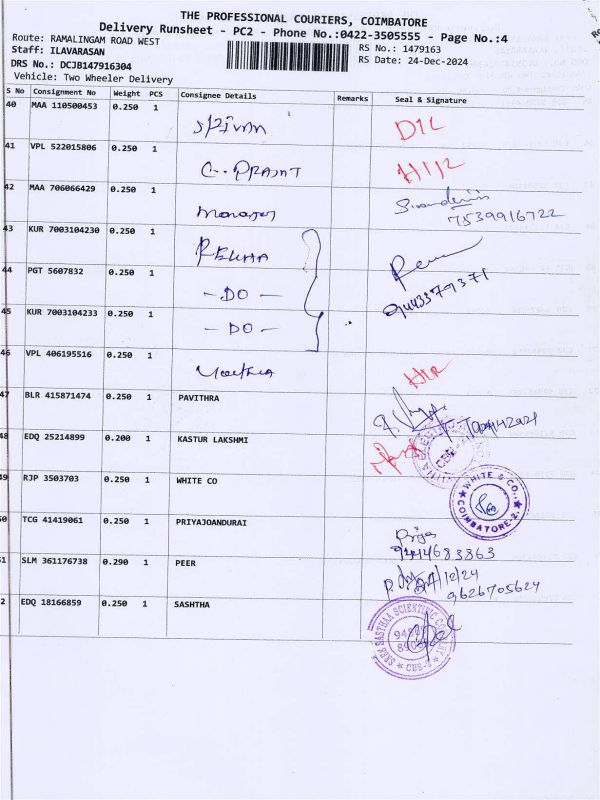 THE PROFESSIONAL COURIERS, COIMBATORE
Delivery Runsheet - PC2 - Phone No.:0422-3505555 - Page No.:4
Route: RAMALINGAM ROAD WEST
RS No.: 1479163
Staff: ILAVARASAN
RS Date: 24-Dec-2024
DRS No.: DCJB147916304
Vehicle: Two Wheeler Delivery
S No Consignment No Weight PCS Consignee Details Remarks Seal & Signature
40 MAA 110500453 0.250 1
41 VPL 522015806 0.250 1
42 MAA 706066429 0.250 1 Manager
7539916722
43 KUR 7003104230 0.250 1 REKHA
44 PGT 5607832 0.250 1 - DO -
9443379371
45 KUR 7003104233 0.250 1 - DO -
46 VPL 406195516 0.250 1
47 BLR 415871474 0.250 1 PAVITHRA
48 EDQ 25214899 0.200 1 KASTUR LAKSHMI
49 RJP 3503703 0.250 1 WHITE CO WHITE & CO., COIMBATORE-2.
50 TCG 41419061 0.250 1 PRIYAJOANDURAI Priya
51 SLM 361176738 0.290 1 PEER
9626705624
2 EDQ 18166859 0.250 1 SASHTHA